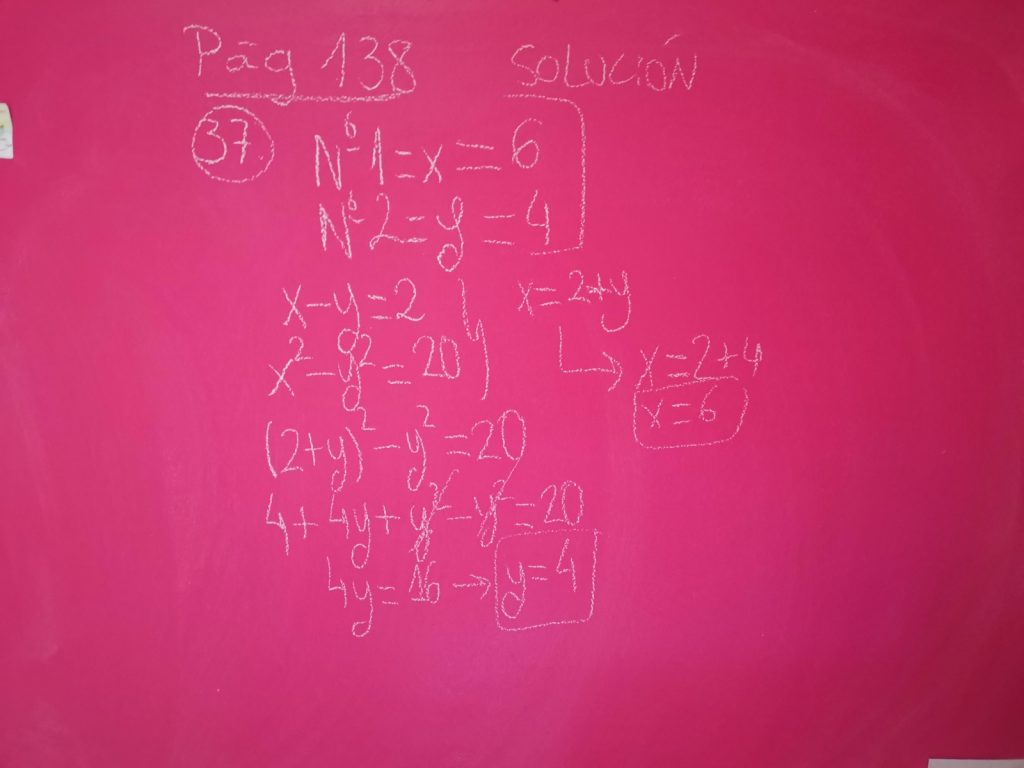 Pág 138 SOLUCIÓN
37 Nº1=x=6
Nº2=y=4
x-y=2 x=2+y
x²-y²=20 x=2+4
x=6
(2+y)²-y²=20
4+4y+y²-y²=20
4y=16→y=4